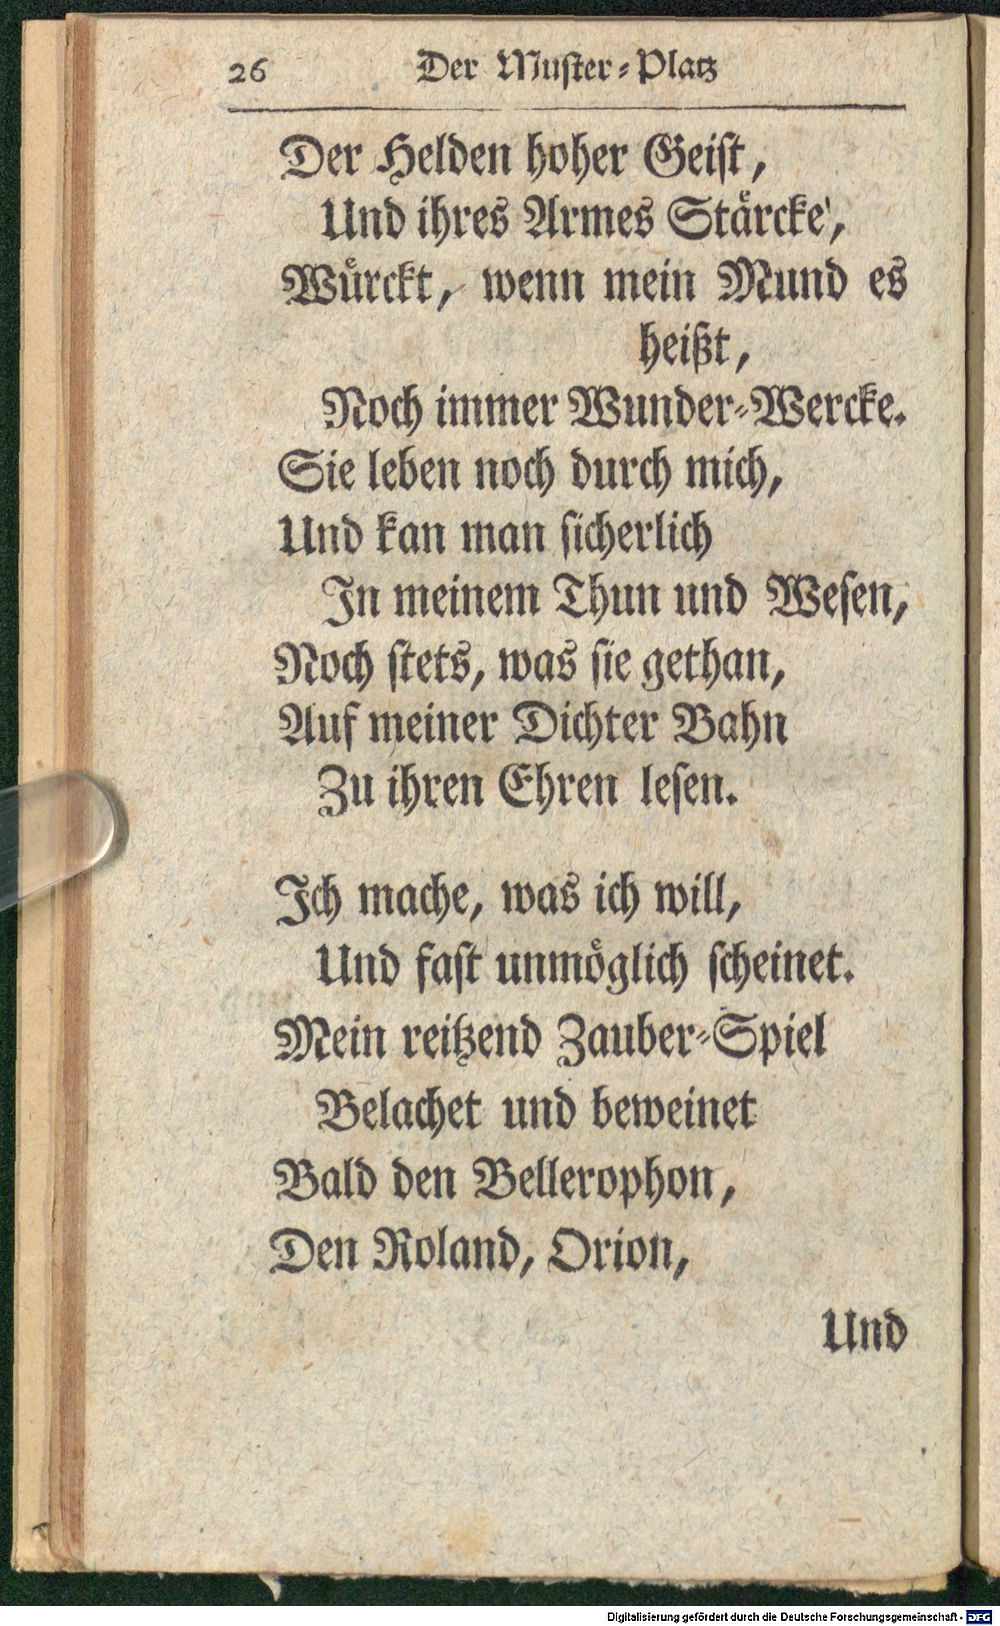 26 Der Muster-Platz
Der Helden hoher Geist,
Und ihres Armes Stärcke,
Würckt, wenn mein Mund es
heißt,
Noch immer Wunder-Wercke.
Sie leben noch durch mich,
Und kan man sicherlich
In meinem Thun und Wesen,
Noch stets, was sie gethan,
Auf meiner Dichter Bahn
Zu ihren Ehren lesen.
Ich mache, was ich will,
Und fast unmöglich scheinet.
Mein reitzend Zauber-Spiel
Belachet und beweinet
Bald den Bellerophon,
Den Roland, Orion,
Und
Digitalisierung gefördert durch die Deutsche Forschungsgemeinschaft - DFG